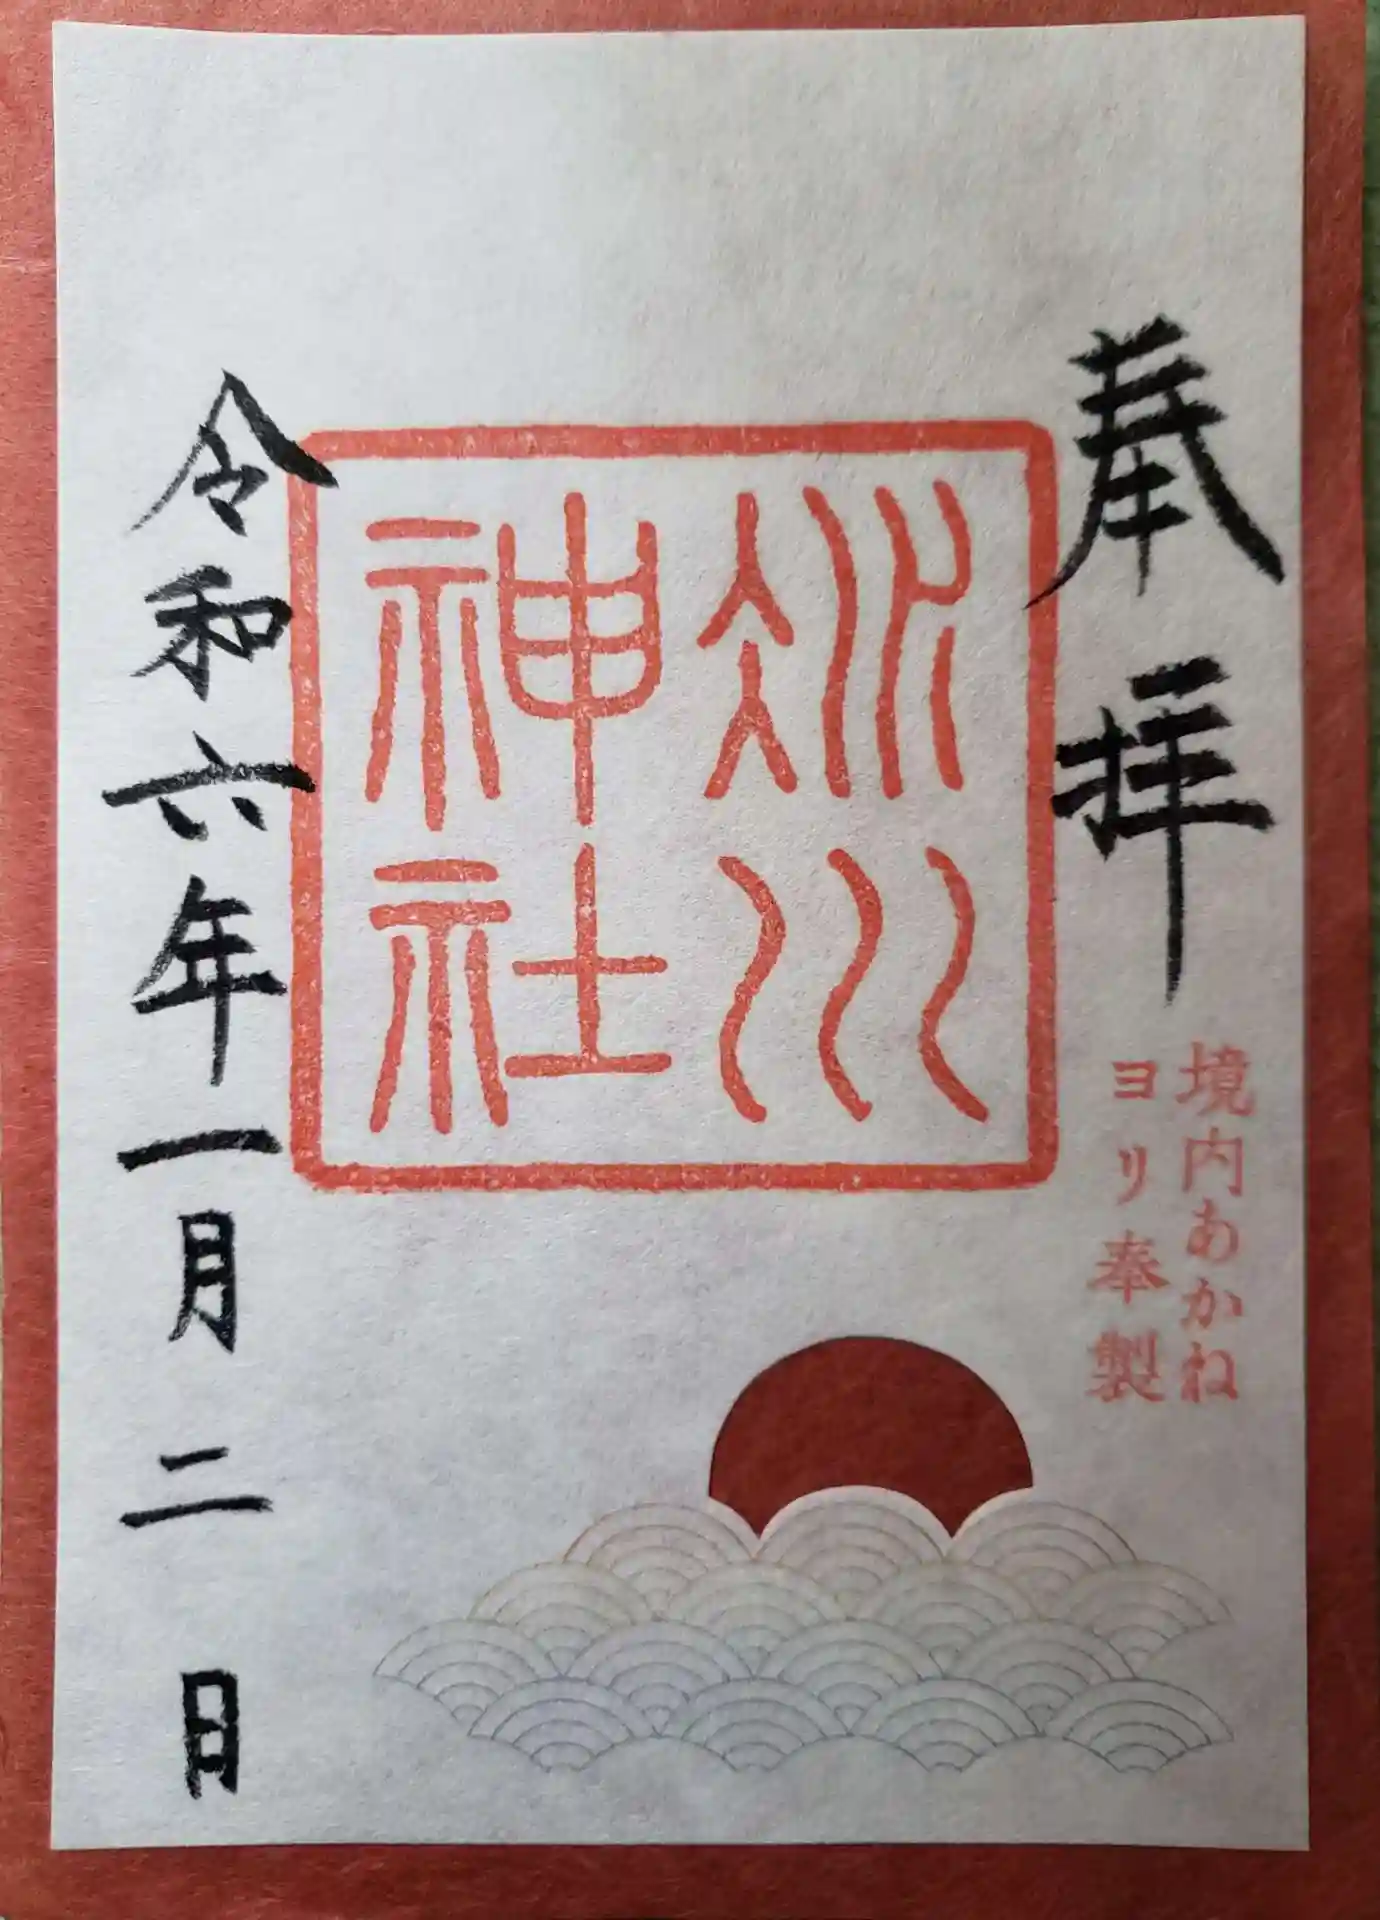 奉拝
境内あかね
ヨリ奉製
冰川
神社
令和六年一月二日